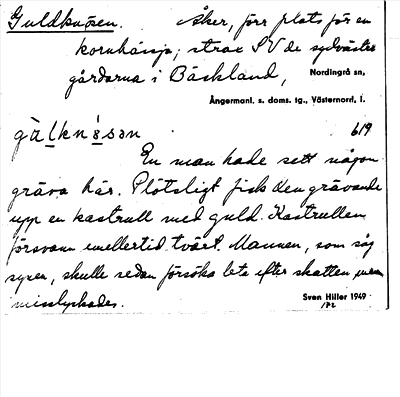 Guldknösen. Åker, förr plats för en
kornhässja; strax SV de sydvästra
gårdarna i Bäckland, Nordingrå sn,
Ångermanl. s. doms. tg., Västernorrl. l.
619
En man hade sett någon
gräva här. Plötsligt fick den grävande
upp en kastrull med guld. Kastrullen
försvann emellertid tvärt. Mannen, som såg
synen, skulle sedan försöka leta efter skatten, men
misslyckades.
Sven Hiller 1949